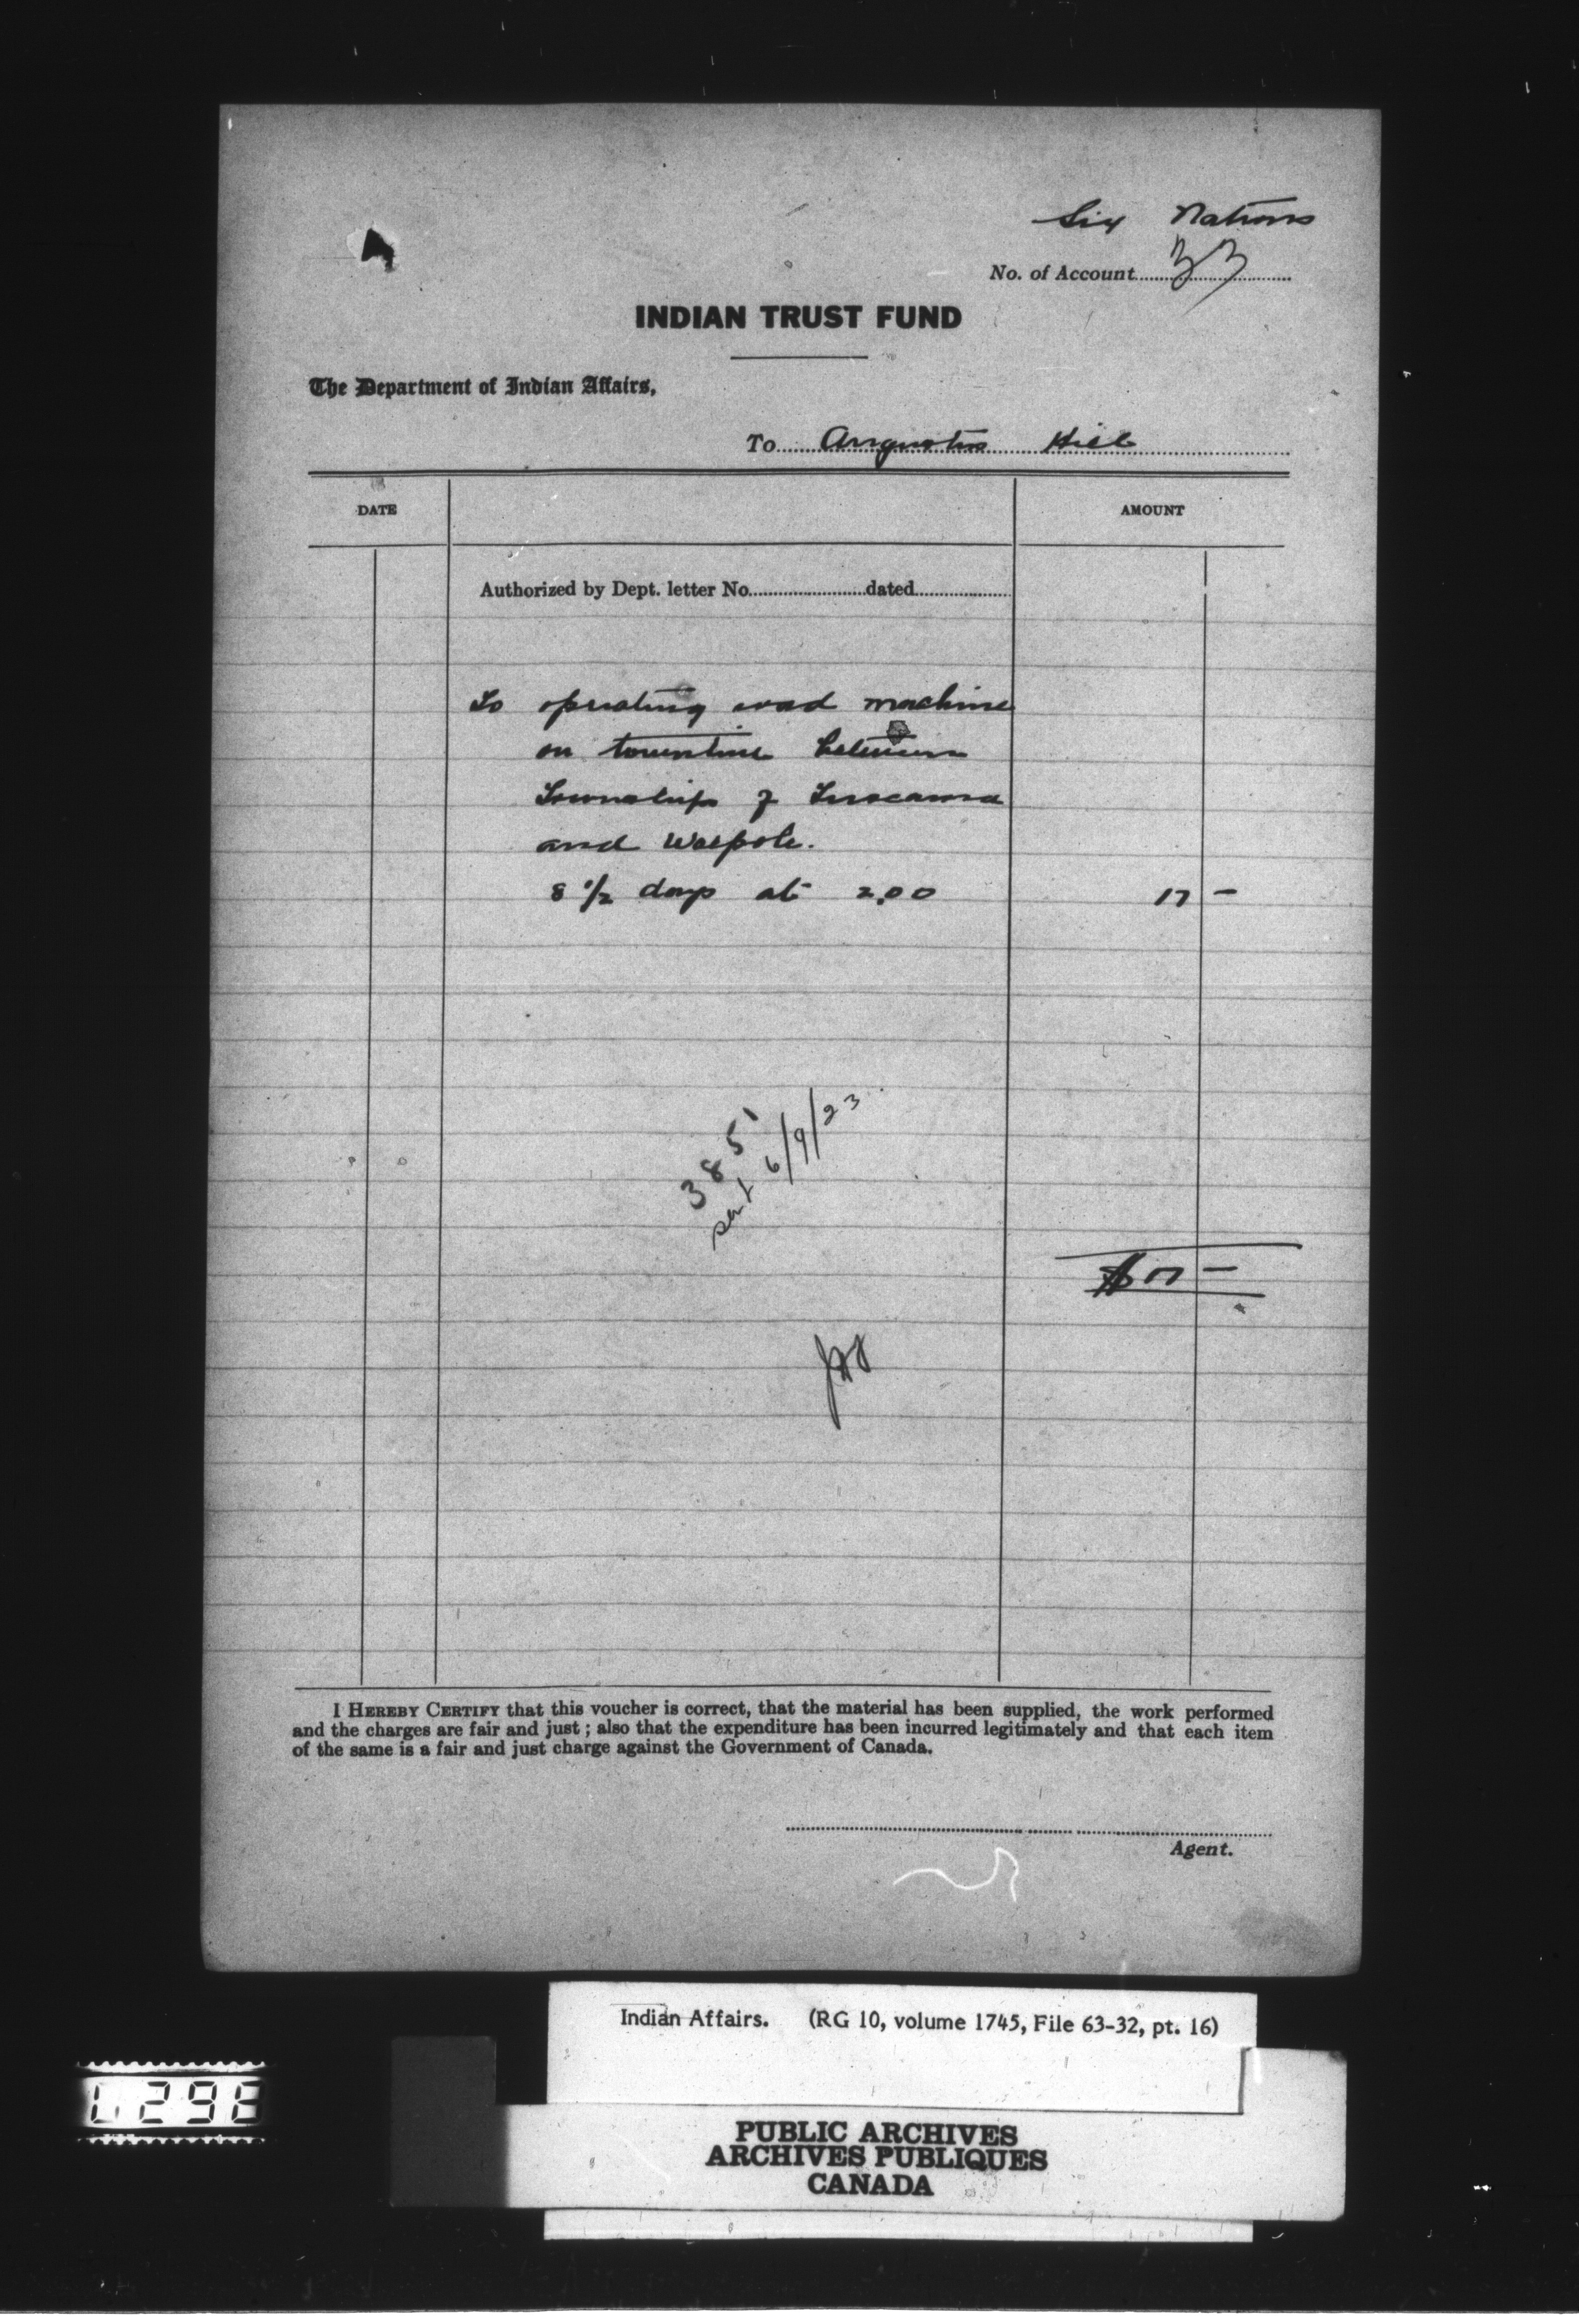 Six Nations
No. of Account 33
INDIAN TRUST FUND
The Department of Indian Affairs,
To Augustus Hill
DATE
AMOUNT
Authorized by Dept. letter No. dated
To operating road machine
on townline between
Townships of Tuscarora
and Walpole.
8 1/2 days at 2.00 17 –
3851
sent 6/9/23
$17 –
I HEREBY CERTIFY that this voucher is correct, that the material has been supplied, the work performed
and the charges are fair and just; also that the expenditure has been incurred legitimately and that each item
of the same is a fair and just charge against the Government of Canada.
Agent.
Indian Affairs. (RG 10, volume 1745, File 63-32, pt. 16)
PUBLIC ARCHIVES
ARCHIVES PUBLIQUES
CANADA